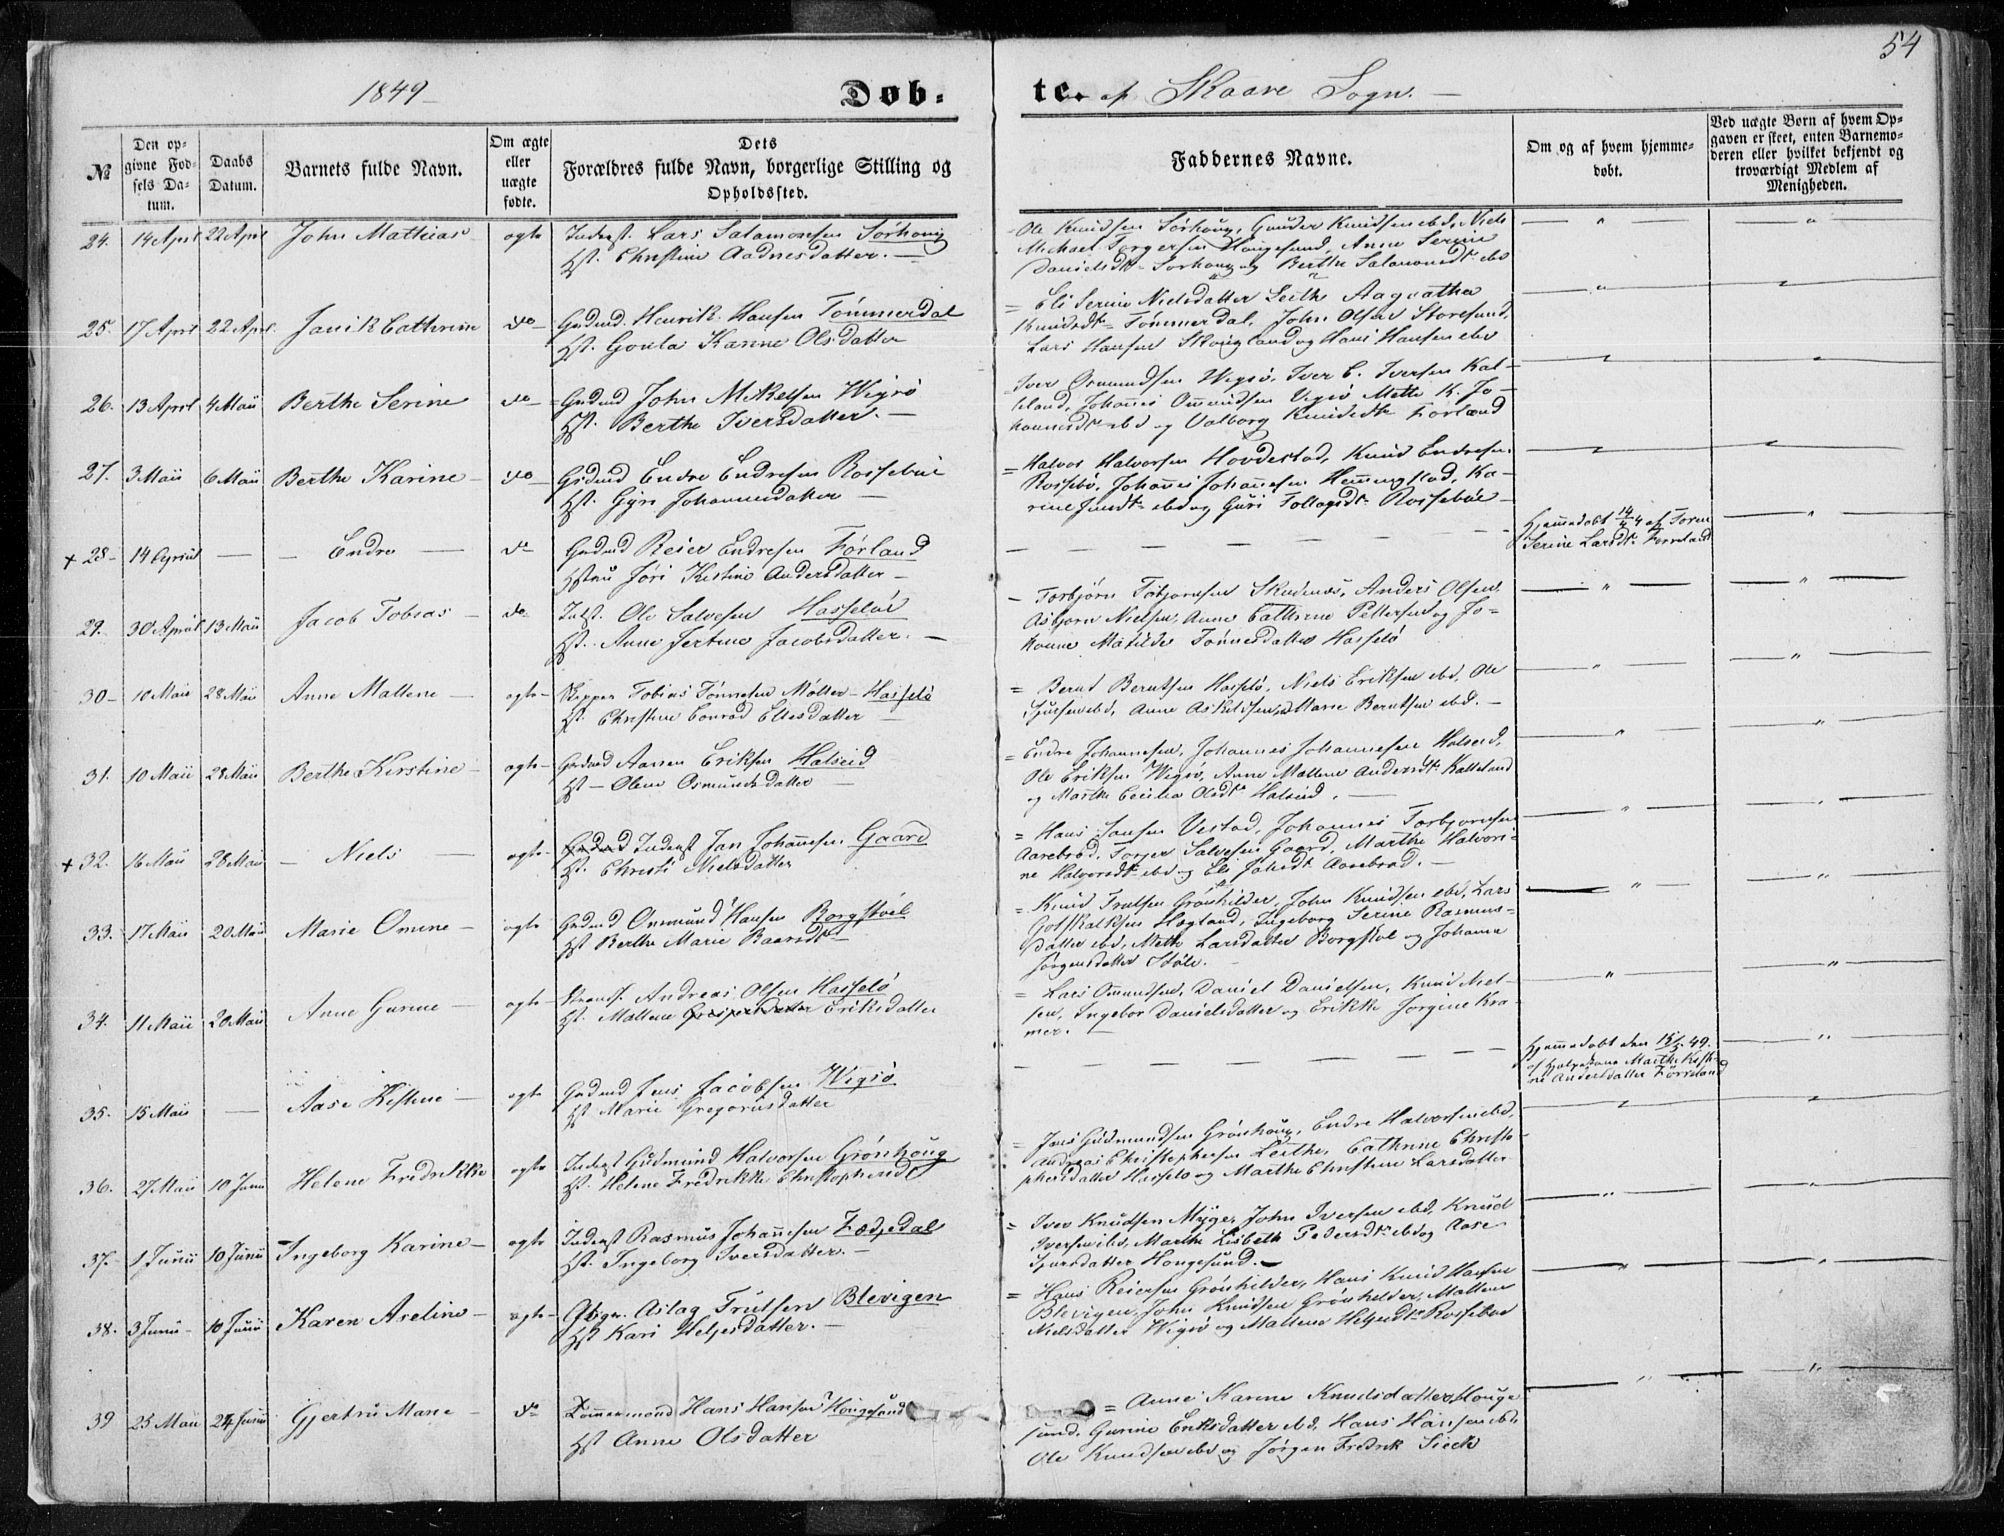 54
1849
Døb-
te. af Skaare Sogn.
№
Den op-
givne Fød-
sels Da-
tum.
Daabs
Datum.
Barnets fulde Navn.
Om ægte
eller
uægte
fødte.
Dets
Forældres fulde Navn, borgerlige Stilling og
Opholdssted.
Faddernes Navne.
Om og af hvem hjemme-
døbt.
Ved uægte Børn af hvem Op-
gaven er skeet, enten Barnemo-
deren eller hvilket bekjendt og
troværdigt Medlem af
Menigheden.
24. 14 April 22 April John Mathias ægte Inderst. Lars Salamonsen Sørhoug
Hst. Christine Aadnesdatter.
Ole Knudsen Sørhoug, Gunder Knudsen ebd, Niels
Michael Torgersen Hougesund, Anne Serine
Danielsdt Sørhoug og Berthe Salamonsdt ebd
25. 17 April 22 April Janik Cathrine do Gmdmd. Henrik Hansen Tømmerdal
Hst. Gonla Karine Olsdatter
= Eli Serine Nielsdatter Leithe Aagaatha
Knudsdt Tømmerdal, John Olsen Storesund,
Lars Hansen Skougland og Hans Hansen ebd
26. 13 April 4 Maii Berthe Serine do Gmdmd John Mikelsen Wigsø
Hst. Berthe Iversdatter.
Iver Osmundsen Wigsø, Iver C. Iversen Kal-
land, Johannes Ommundsen Vigsø Mette K. Jo-
hannesdt ebd og Valborg Knudsdt Førland
27. 3 Maii 6 Maii Berthe Karine do Gmdmd Endre Endresen Rossebøe
Hst. Gyri Johannesdatter
= Halvor Halvorsen Hovdestad, Knud Endresen
Rossebø, Johannes Johannesen Hemmingstad, Ka-
rine Jensdt ebd og Guri Tollagsdt Rossebøe
+ 28 14 Endre do Gmdmd Reier Endresen Førland
Hstru Jøri Kistine Andersdatter
Hjemmedøbt 14/4 af Toren
Serine Larsdt Førreland
29. 30 April 13 Maii Jacob Tobias do Indst. Ole Salvesen Hasseløe
Hst. Anne Jertine Jacobsdatter.
Torbjørn Torbjørnsen Skudenæs, Anders Olsen,
Asbjørn Nielsen, Anne Cathrine Pettersen og Jo-
hanne Matilde Tønnesdatter Hasselø
30 10 Maii 28 Maii Anne Mallene ægte Skipper Tobias Tønnesen Møller Hasselø
Hst. Christine Conrad Ellesdatter
= Bernt Berntsen Hasselø, Niels Eriksen ebd, Ole
Sjursen ebd, Anne Askeldsen, Marie Berntsen ebd.
31. 10 Maii 28 Maii Berthe Kirstine ægte Gmdmd Aanen Eriksen Halseid
Hst Olene Osmundsdatter
= Endre Johannesen, Johannes Johannesen Halseid,
Ole Eriksen Wigsø, Anne Mallene Andersdt Kalleland
og Marthe Cecilia Olsdt Halseid.
+ 32. 16 Maii 28 Maii Niels ægte Gmdmd Inderst Jan Johannesen Gaard
Hst. Christi Nielsdatter
= Hans Jansen Vestad, Johannes Torbjørnsen
Aarebrod, Torger Salvesen Gaard, Marthe Halvori-
ne Halvorsdt ebd og Eli Johsdt Aarebrod.
33. 17 Maii 20 Maii Marie Omine ægte Gmdmd Ommund Hansen Borgstøel
Hst Berthe Marie Baarsdt
= Knud Trulsen Grønhilder, John Knudsen ebd, Lars
Gotskalksen Hogland, Ingeborg Serine Rasmus-
datter ebd, Mette Larsdatter Borgstøl og Johanne
Jørgensdatter Støle.
34. 11 Maii 20 Maii Anne Gurine ægte Strands. Andreas Olsen Hasselø
Hst. Mallene Eriksdatter
= Lars Omundsen, Daniel Danielsen, Knud Niel-
sen, Ingebor Danielsdatter og Erikke Jørgine Kra-
mer.
35. 15 Maii Aase Kistine ægte Gmdmd Jens Jacobsen Wigsø
Hst Marie Gregoriusdatter
Hjemmedøbt den 15/5 49.
af Hjelpekone Marthe Kisti-
ne Andersdatter Førreland
36. 27 Maii 10 Junii Helene Fredrikke ægte Inderst Gudmund Halvorsen Grønhoug
Hst. Helene Fredrikke Christophersdt
= Jens Gudmundsen Grønhoug, Endre Halvorsen ebd,
Andreas Christophersen Leithe, Cathrine Christo-
phersdatter Hasselø og Marthe Christine Larsdatter
37. 1 Junii 10 Junii Ingeborg Karine ægte Inderst Rasmus Johannesen Fædjedal
Hst. Ingeborg Iversdatter.
= Iver Knudsen Myge, John Iversen ebd, Knud
Iversen ebd, Marthe Lisbeth Pedersdt ebd og Aase
Sjursdatter Hougesund.
38. 3 Junii 10 Junii Karen Aseline ægte Aslag Trulsen Blevigen
Hst Kari Heljesdatter.
= Hans Reiersen Grønhilder, Hans Knud Hansen
Blevigen, John Knudsen Grønhilder, Mallene
Nielsdatter Wigsø og Mallene Heljesdt Rossebøe
39 25 Maii 24 Junii Gjertru Marie do Tømmermand Hans Hansen Hougesund
Hst Anne Olsdatter
= Anne Karine Knudsdatter Houge
sund, Gurine Eriksdatter ebd, Hans Hansen ebd,
Ole Knudsen ebd og Jørgen Fredrik Sieck